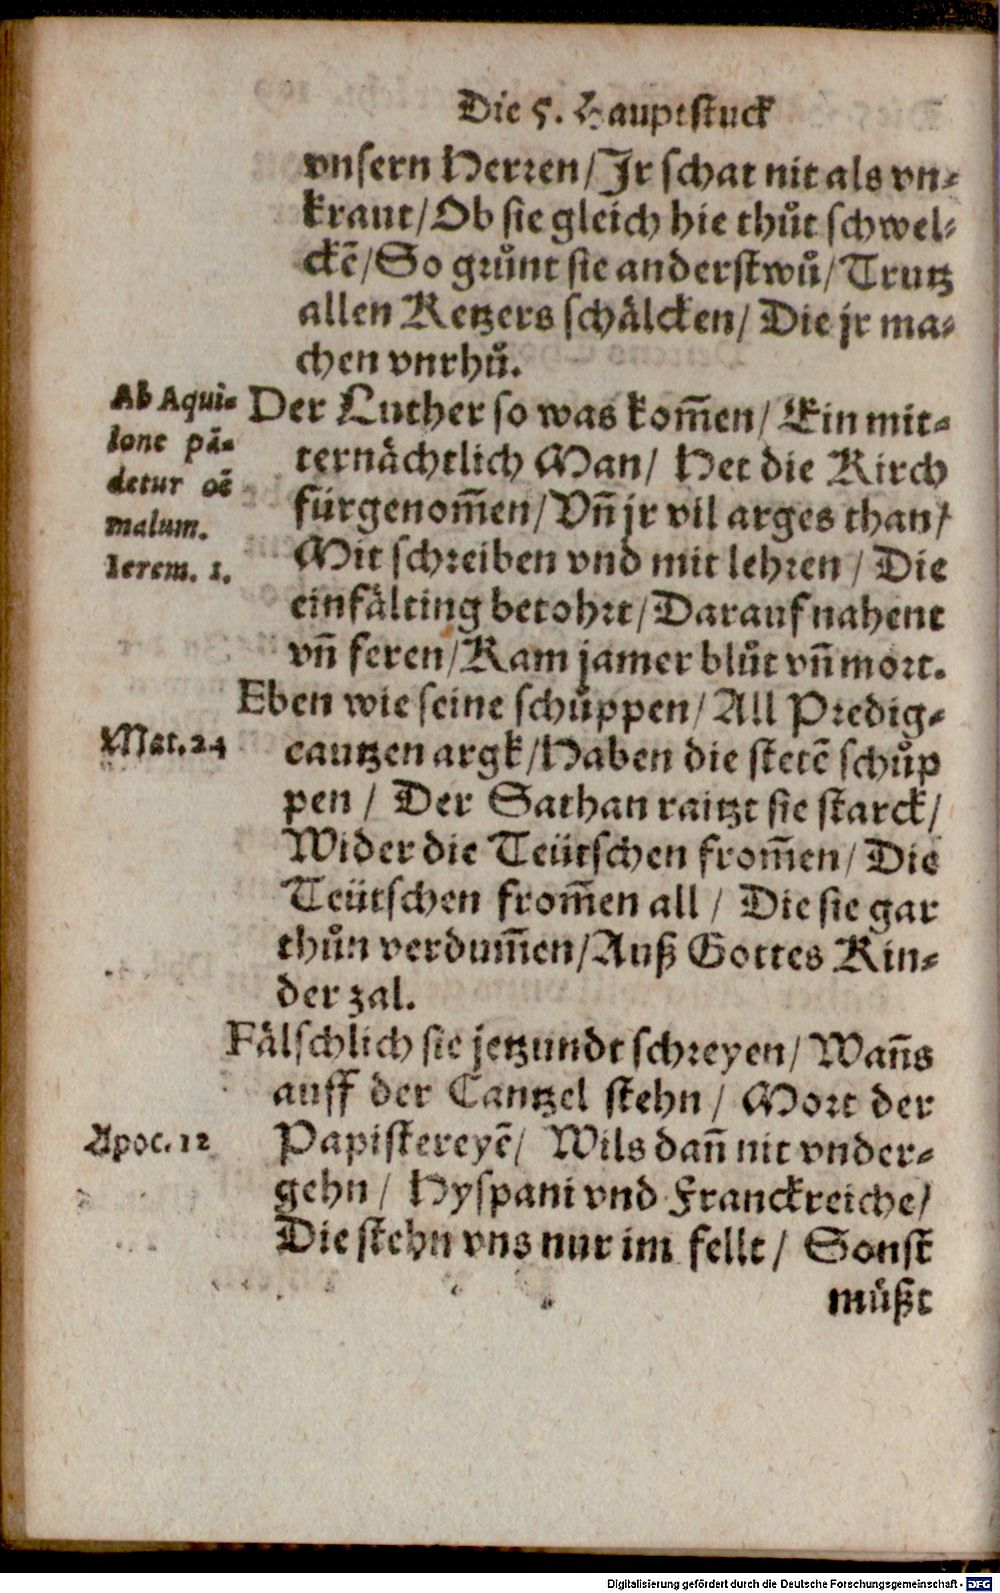 Die 5. Hauptstuck
vnsern Herren/ Jr schat nit als vn-
kraut/ Ob sie gleich hie thůt schwel-
ckē/ So grůnt sie anderstwů/ Trutz
allen Ketzers schälcken/ Die jr ma-
chen vnrhů.
Ab Aqui-
lone pā-
detur oē
malum.
Ierem. 1.
Der Luther so was kom̃en/ Ein mit-
ternächtlich Man/ Het die Kirch
fürgenom̃en/ Vñ jr vil arges than/
Mit schreiben vnd mit lehren/ Die
einfälting betohrt/ Darauf nahent
vñ feren/ Kam jamer blůt vñ mort.
Eben wie seine schůppen/ All Predig-
Mat. 24
cautzen argk/ Haben die stetē schůp
pen/ Der Sathan raitzt sie starck/
Wider die Teütschen from̃en/ Die
Teütschen from̃en all/ Die sie gar
thůn verdum̃en/ Auß Gottes Kin-
der zal.
Fälschlich sie jetzundt schreyen/ Wañs
auff der Cantzel stehn/ Mort der
Apoc. 12
Papistereyē/ Wils dañ nit vnder-
gehn/ Hyspani vnd Franckreiche/
Die stehn vns nur im fellt/ Sonst
müßt
Digitalisierung gefördert durch die Deutsche Forschungsgemeinschaft - DFG